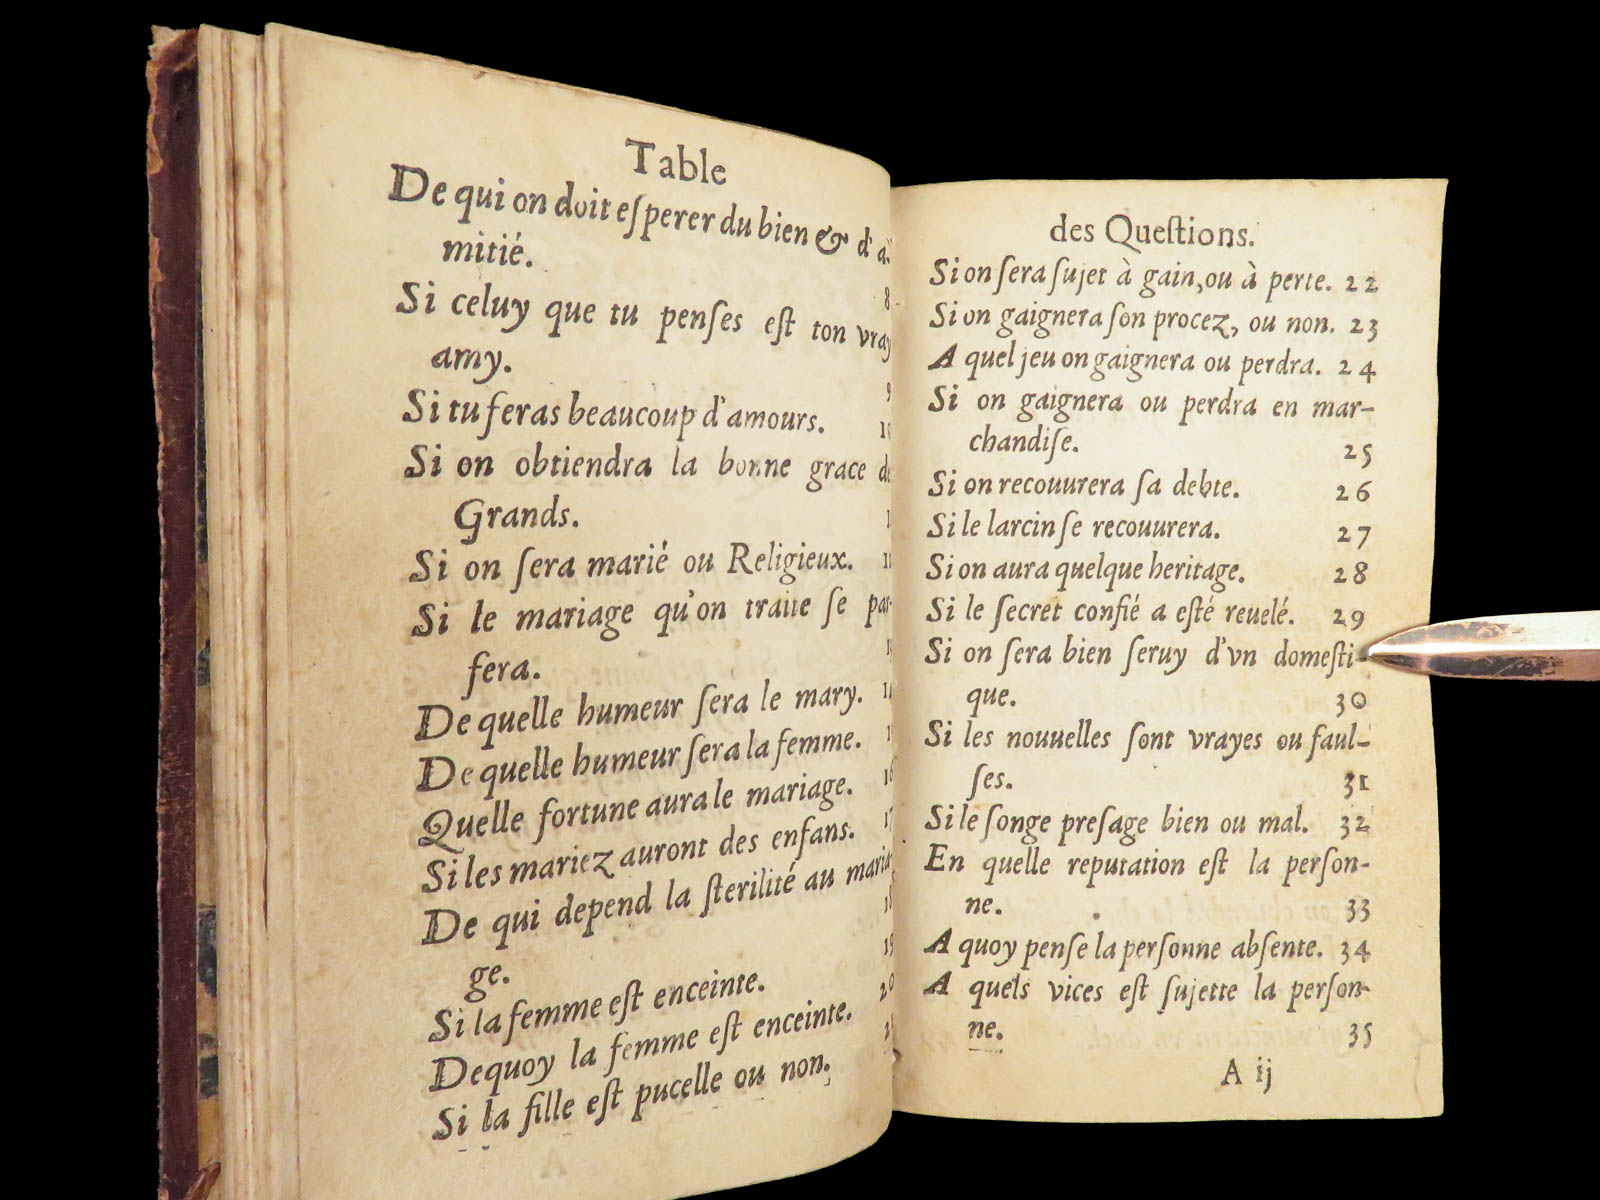 Table
De qui on doit eſperer du bien & d'a-
mitié. 8
Si celuy que tu penſes eſt ton vray
amy. 9
Si tu feras beaucoup d'amours. 10
Si on obtiendra la bonne grace de
Grands.
Si on ſera marié ou Religieux.
Si le mariage qu'on traite ſe par-
fera.
De quelle humeur ſera le mary.
De quelle humeur ſera la femme.
Quelle fortune aura le mariage. 16
Si les mariez auront des enfans. 17
De qui depend la ſterilité au maria-
ge. 18
Si la femme eſt enceinte. 19
Dequoy la femme eſt enceinte. 20
Si la fille eſt pucelle ou non. 21
des Queſtions.
Si on ſera ſujet à gain, ou à perte. 22
Si on gaignera ſon procez, ou non. 23
A quel jeu on gaignera ou perdra. 24
Si on gaignera ou perdra en mar-
chandiſe. 25
Si on recouurera ſa debte. 26
Si le larcin ſe recouurera. 27
Si on aura quelque heritage. 28
Si le ſecret confié a eſté reuelé. 29
Si on ſera bien ſeruy d'vn domeſti-
que. 30
Si les nouuelles ſont vrayes ou fauſ-
ſes. 31
Si le ſonge preſage bien ou mal. 32
En quelle reputation eſt la perſon-
ne. 33
A quoy penſe la perſonne abſente. 34
A quels vices eſt ſujette la perſon-
ne. 35
A ij